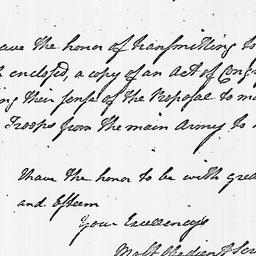 ave the honor of transmitting to
enclosed, a copy of an Act of Cong
ing their sense of the Proposal to
Troops from the main Army to
I have the honor to be with grea
and Esteem
Your Excellency's
Most Obedient Ser